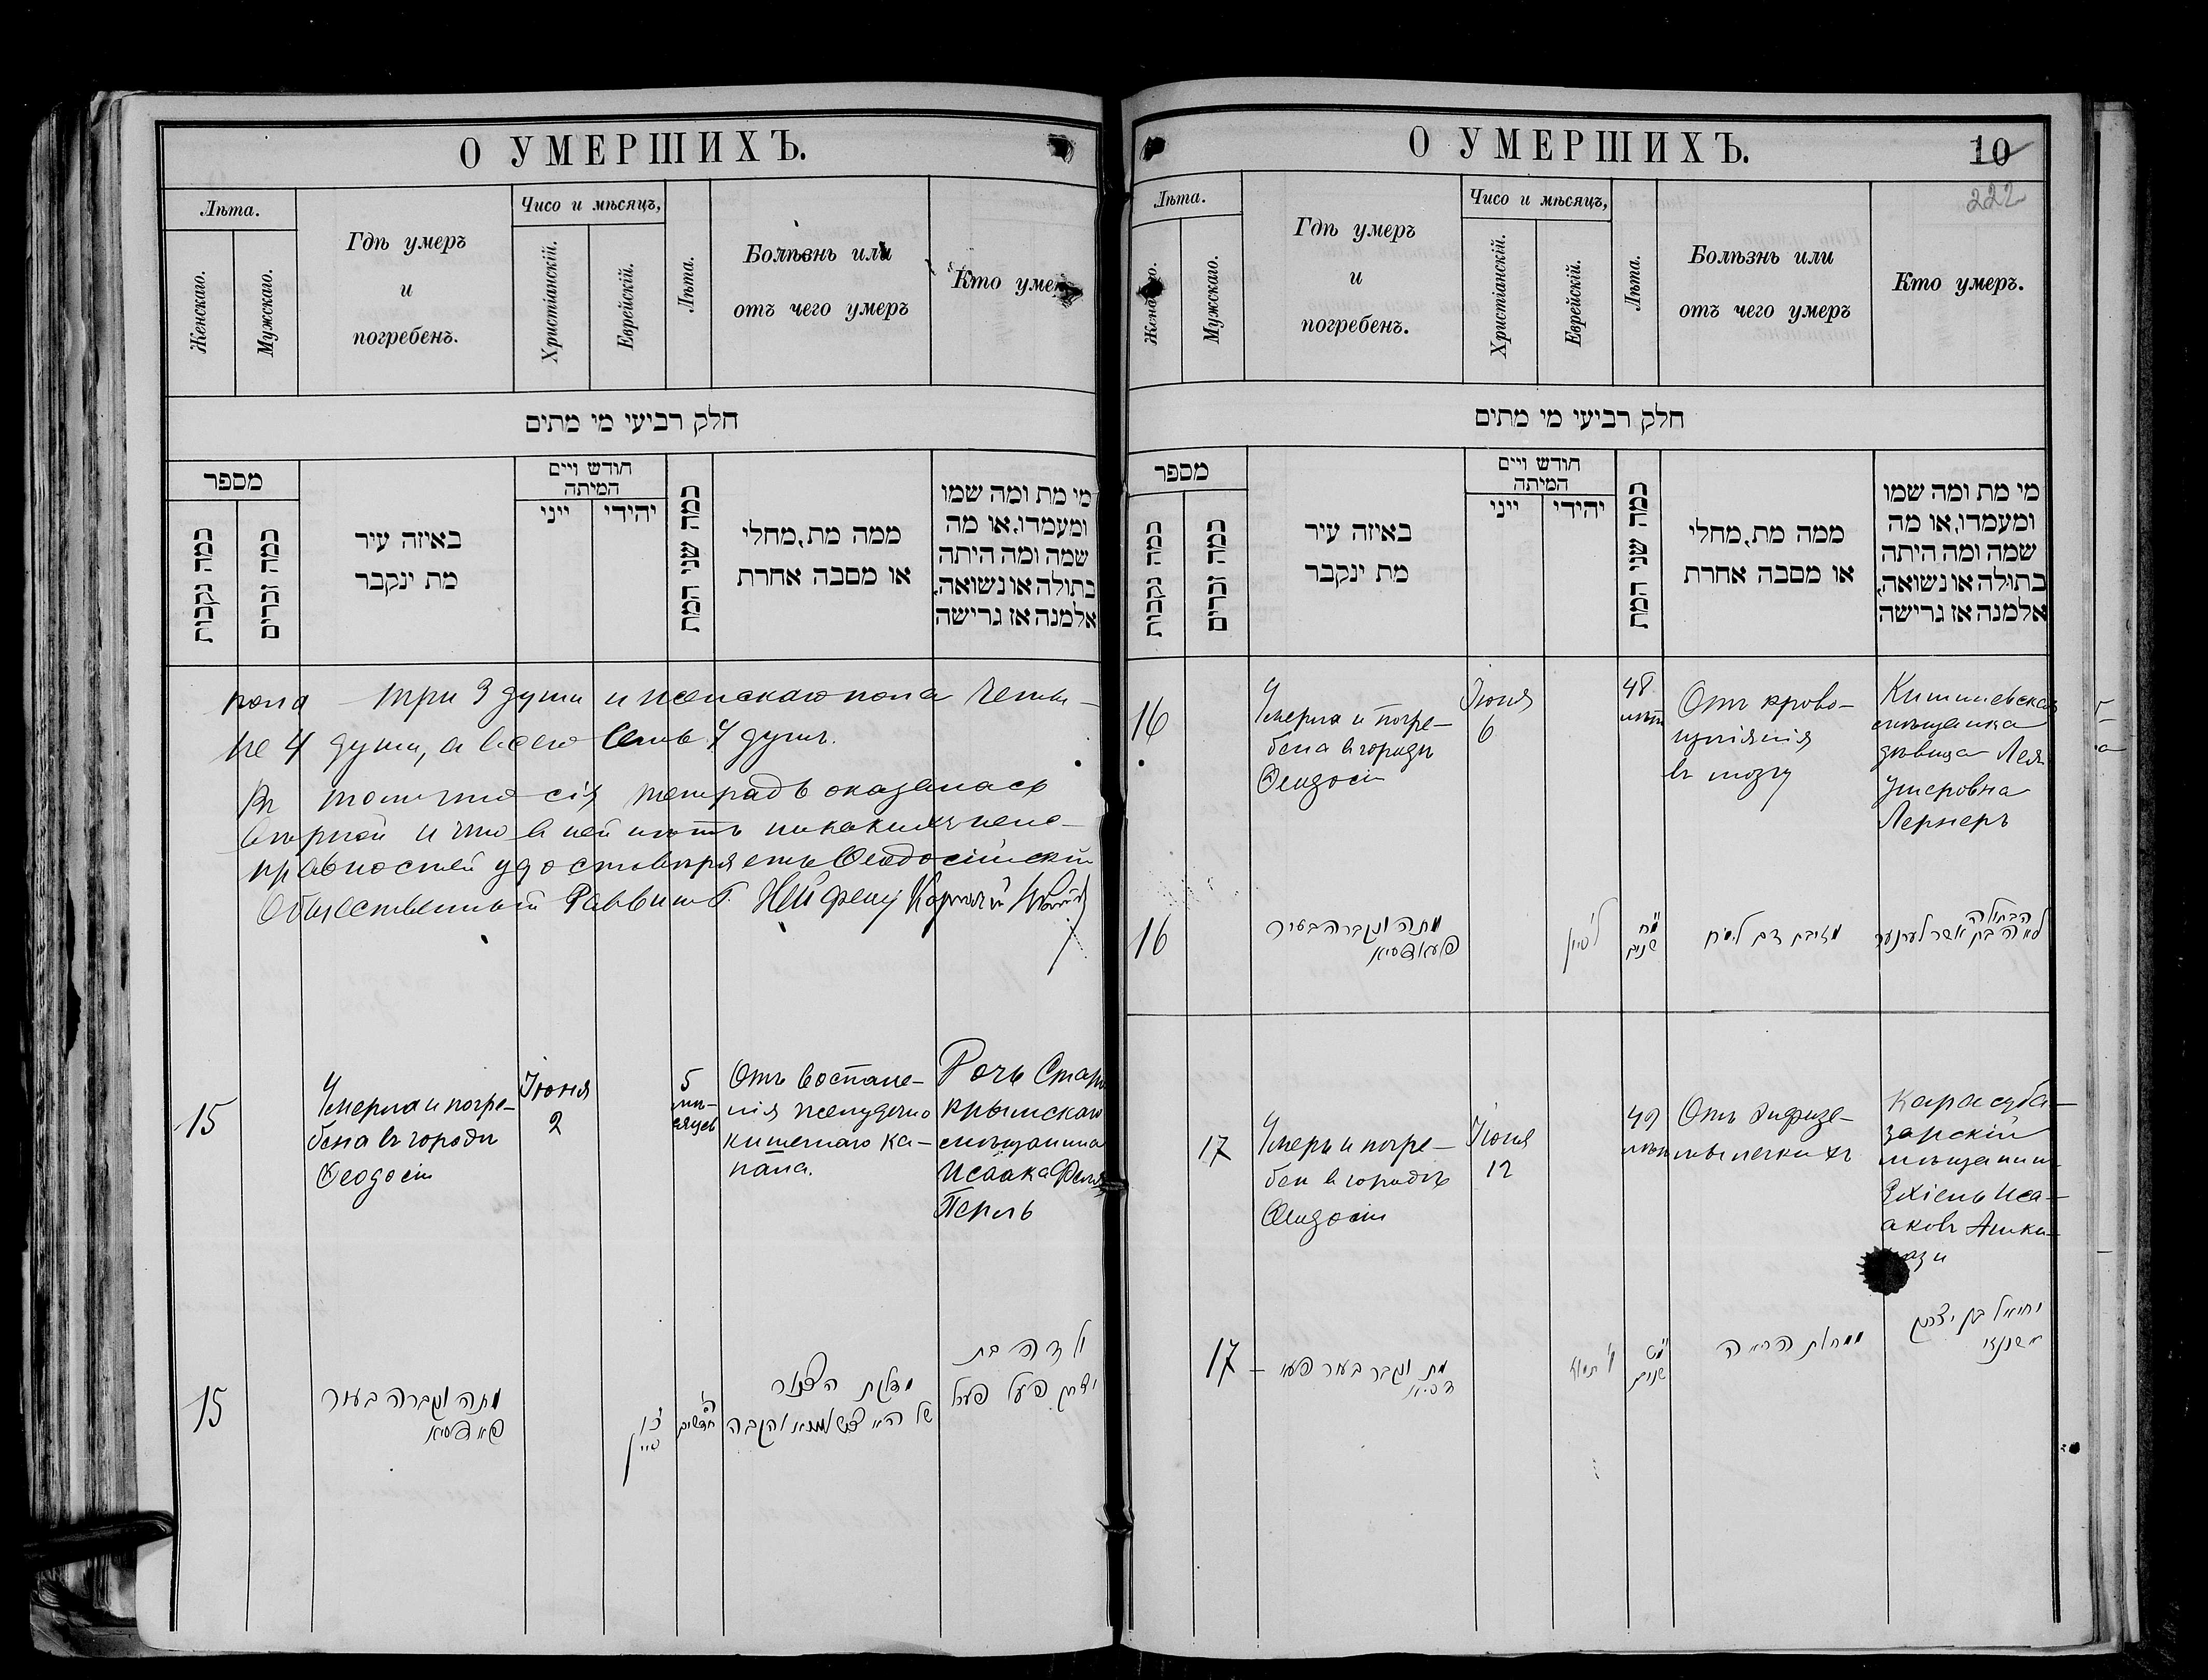 О УМЕРШИХЪ.
Лѣта.
Женскаго.
Мужскаго.
Гдѣ умеръ
и
погребенъ.
Чисо и мѣсяцъ,
Христіанскій.
Еврейскій.
Лѣта.
Болѣзнь или
отъ чего умеръ
Кто умер
חלק רביעי מי מתים
מספר
כמה נקבות
כמה זכרים
באיזה עיר
מת ינקבר
חודש ויים
המיתה
ייני
יהידי
כמה שני המת
ממה מת, מחלי
או מסבה אחרת
מי מת ומה שמו
ומעמדו, או מה
שמה ומה היתה
בתולה או נשואה,
אלמנה אז גרישה
пола три 3 души и женскаго пола четы-
ре 4 души, а всего семь 7 душъ.
Въ томъ что сія тетрадь оказалась
вѣрной и что въ ней нѣтъ никакихъ неис-
правностей удостовѣряетъ Ѳеодосійскій
Общественный Раввинъ
15
Умерла и погре-
бена въ городѣ
Ѳеодосіи
Іюня
2
5
мѣ-
сяцевъ
Отъ воспале-
нія желудочно
кишечнаго ка-
нала.
Дочь Старо
крымскаго
мѣщанина
Исаака
Перль
15
מתה ונקברה בעיר
חדשים
דלקת הצנור
ולדה בת
יצחק
О УМЕРШИХЪ.
10
222
Лѣта.
Женскаго.
Мужскаго.
Гдѣ умеръ
и
погребенъ.
Чисо и мѣсяцъ,
Христіанскій.
Еврейскій.
Лѣта.
Болѣзнь или
отъ чего умеръ
Кто умеръ.
חלק רביעי מי מתים
מספר
כמה נקבות
כמה זכרים
באיזה עיר
מת ינקבר
חודש ויים
המיתה
ייני
יהידי
כמה שני המת
ממה מת, מחלי
או מסבה אחרת
מי מת ומה שמו
ומעמדו, או מה
שמה ומה היתה
בתולה או נשואה,
אלמנה אז גרישה
16
Умерла и погре-
бена въ городѣ
Ѳеодосіи
Іюня
6
48
лѣтъ
Отъ крово-
изліянія
въ мозгу
Кишиневская
мѣщанка
дѣвица Лея
Ушеровна
Лернеръ
16
מתה ונקברה בעיר
ל סיון
מ״ח
שנים
מזיבת דם למח
הבתולה
לאה בת אשר לערנער
17
Умеръ и погре-
бен въ городѣ
Ѳеодосіи
Іюня
12
49
лѣтъ
Отъ Эмфизе-
мы легкихъ
Карасуба-
зарскій
мѣщанин
Ехіель Иса-
аковъ Ашке-
нази
17
מת ונקבר בעיר פעו
דסיא
ו׳ תמוז
מ״ט
שנים
ממחלת הריאה
יחיאל בן יצחק
אשכנזי